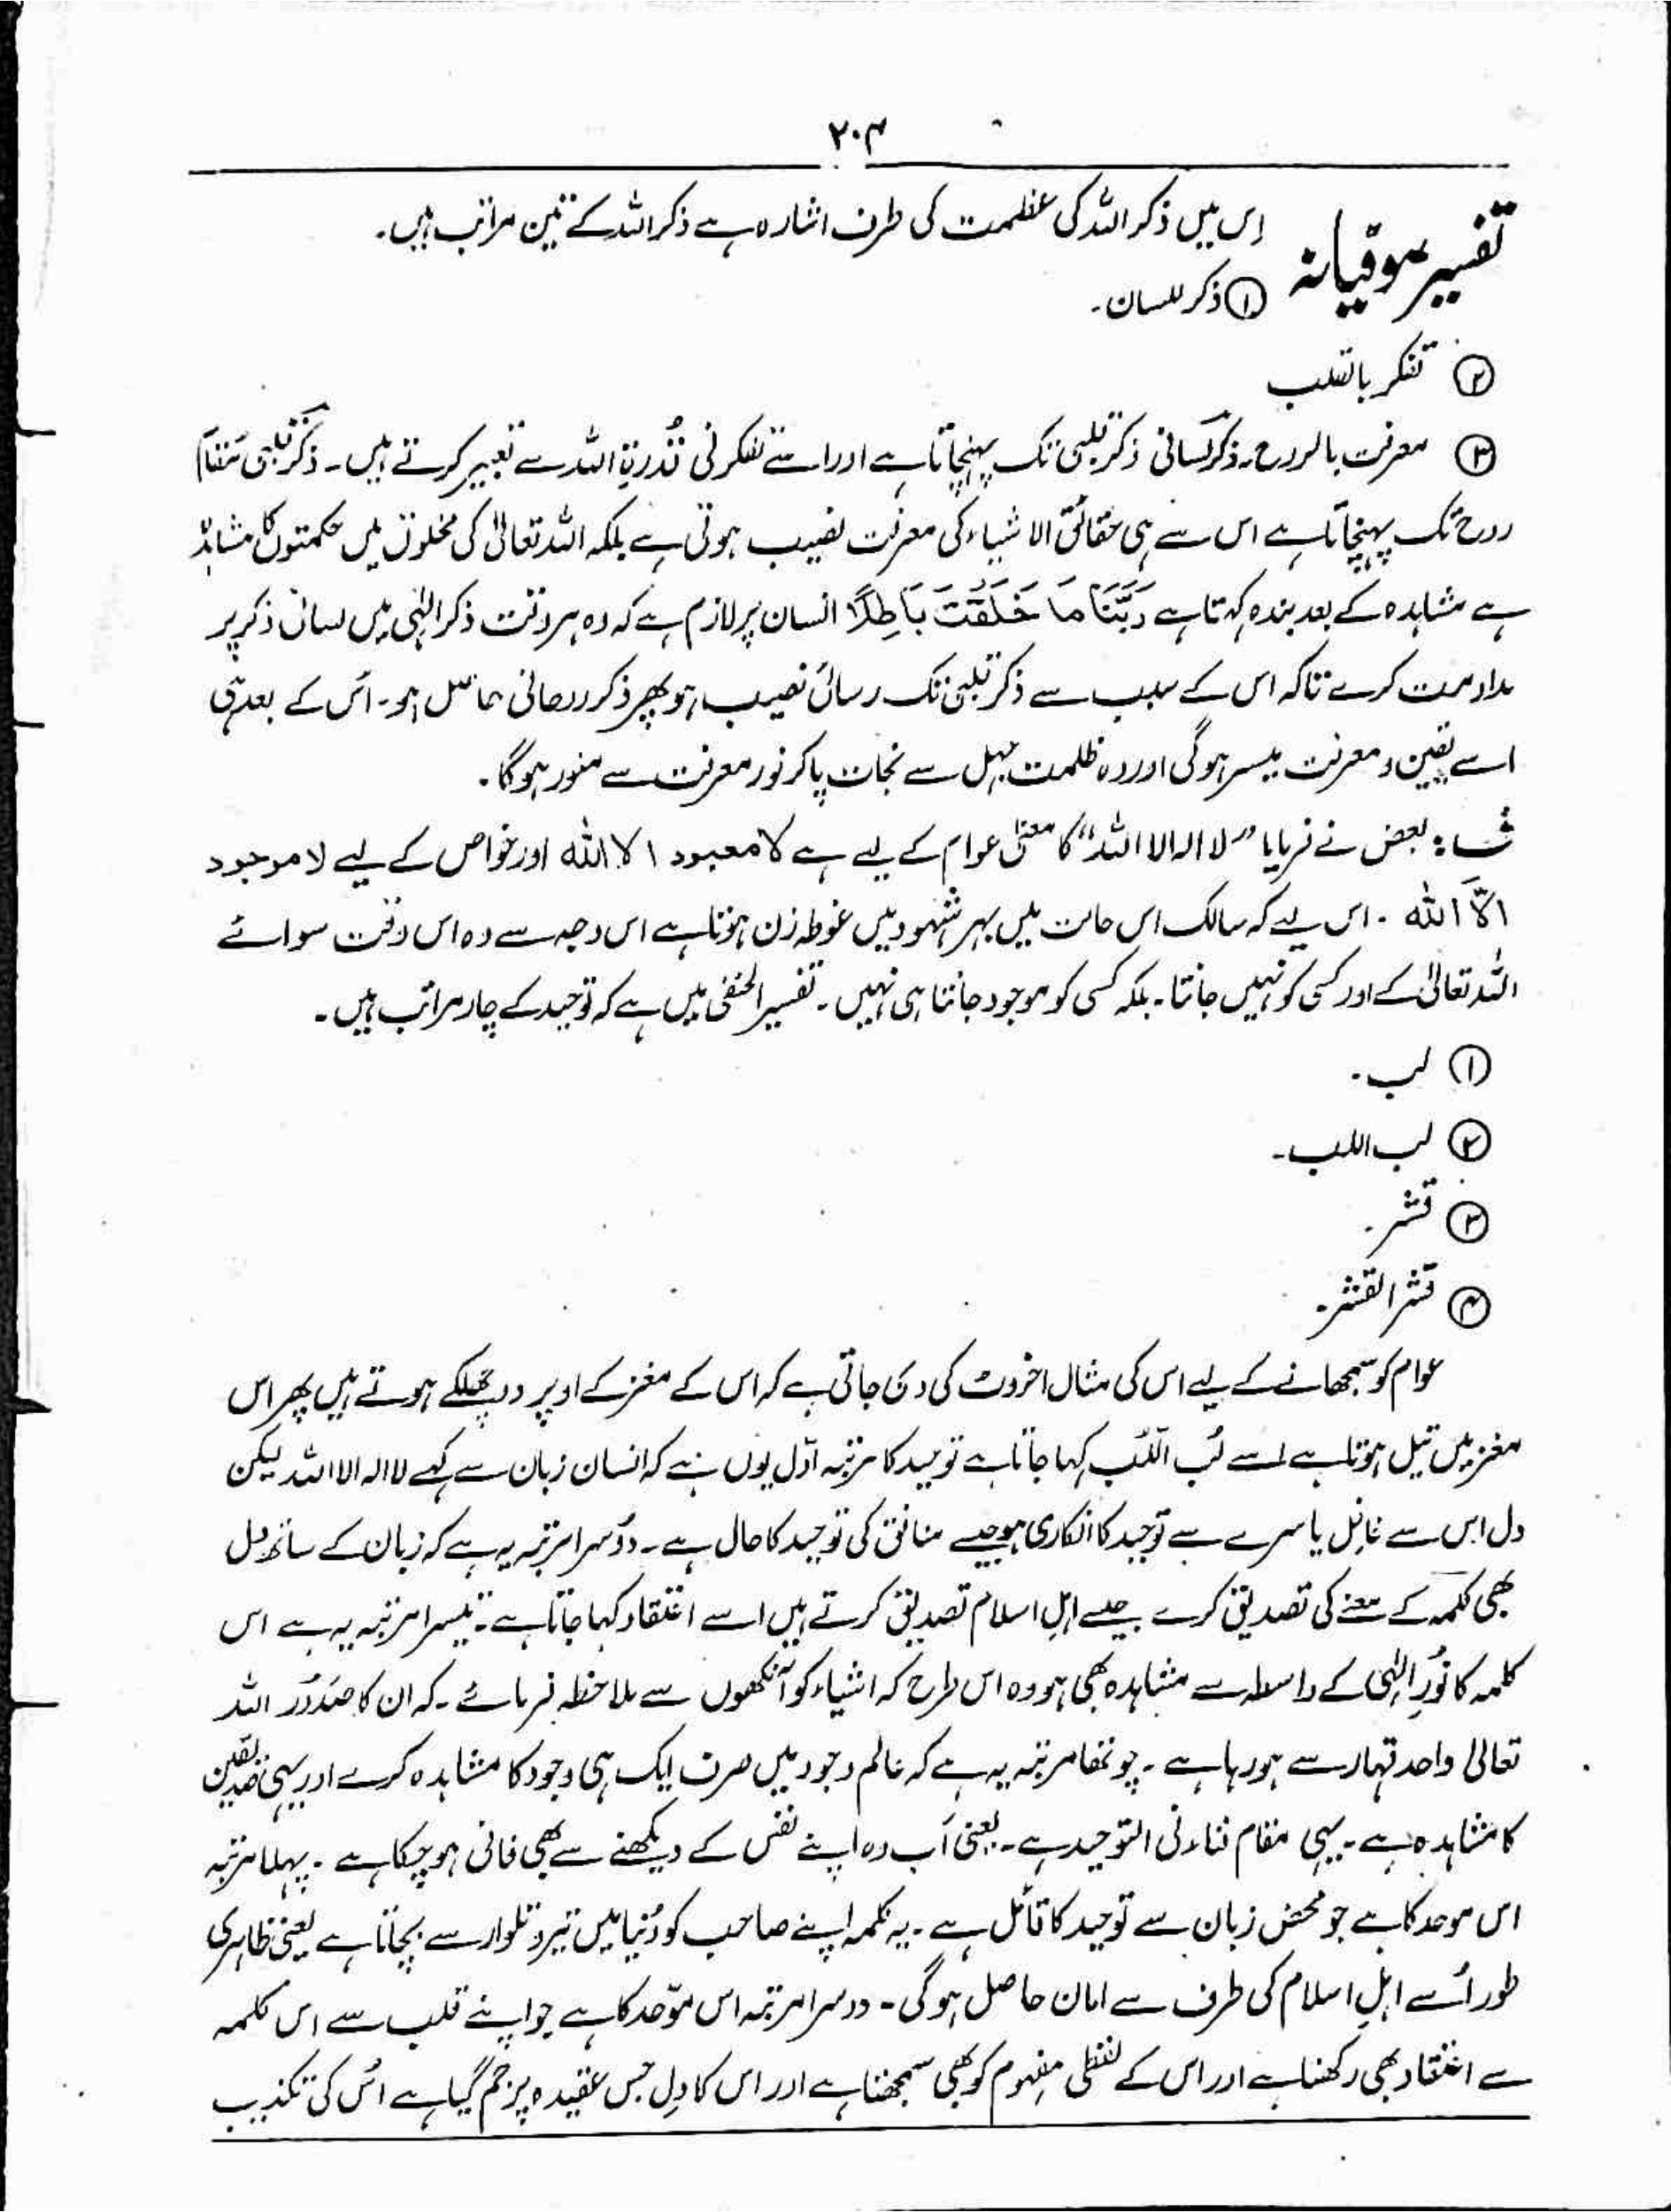 ۲۰۴
تفسیر صوفیانہ
اِس میں ذکر اللہ کی عظمت کی طرف اشارہ ہے ذکر اللہ کے تین مراتب ہیں۔
① ذکر للسان۔
② تفکر بالقلب
③ معرفت بالروح۔ ذکر لسانی ذکر قلبی تک پہنچاتا ہے اور اسے تفکر فی قُدرۃ اللہ سے تعبیر کرتے ہیں۔ ذکر قلبی مَقام
روح تک پہنچاتا ہے اس سے ہی حقائق الاشیاء کی معرفت نصیب ہوتی ہے بلکہ اللہ تعالیٰ کی مخلوق میں حکمتوں کا مشاہدہ
ہے مشاہدہ کے بعد بندہ کہتا ہے رَبَّنَا مَا خَلَقْتَ بَاطِلًا انسان پر لازم ہے کہ وہ ہر وقت ذکر الٰہی میں لسانی ذکر پر
مداومت کرے تاکہ اس کے سبب سے ذکر قلبی تک رسائی نصیب ہو پھر ذکر روحانی حاصل ہو۔ اس کے بعد ہی
اسے یقین و معرفت میسر ہوگی اور وہ ظلمت جہل سے نجات پا کر نور معرفت سے منور ہوگا۔
ف: بعض نے فرمایا "لا الہ الا اللہ" کا معنیٰ عوام کے لیے ہے لا معبود الا اللہ اور خواص کے لیے لا موجود
الّا اللہ۔ اس لیے کہ سالک اس حالت میں بہر شہود میں غوطہ زن ہوتا ہے اس وجہ سے وہ اس وقت سوائے
اللہ تعالیٰ کے اور کسی کو نہیں جانتا۔ بلکہ کسی کو موجود جانتا ہی نہیں۔ تفسیر الحنفی میں ہے کہ توحید کے چار مراتب ہیں۔
① لب۔
② لب اللب۔
③ قشر۔
④ قشر القشر۔
عوام کو سمجھانے کے لیے اس کی مثال اخروٹ کی دی جاتی ہے کہ اس کے مغز کے اوپر دو چھلکے ہوتے ہیں پھر اس
مغز میں تیل ہوتا ہے اسے لُب اللُّب کہا جاتا ہے توحید کا مرتبہ اوّل یوں ہے کہ انسان زبان سے کہے لا الہ الا اللہ لیکن
دل اس سے غافل یا سرے سے توحید کا انکاری ہو جیسے منافق کی توحید کا حال ہے۔ دُوسرا مرتبہ یہ ہے کہ زبان کے ساتھ دل
بھی کلمہ کے معنے کی تصدیق کرے جیسے اہلِ اسلام تصدیق کرتے ہیں اسے اعتقاد کہا جاتا ہے۔ تیسرا مرتبہ یہ ہے اس
کلمہ کا نُورِ الٰہی کے واسطہ سے مشاہدہ بھی ہو وہ اس طرح کہ اشیاء کو آنکھوں سے ملاحظہ فرمائے۔ کہ ان کا صدُور اللہ
تعالیٰ واحد قہار سے ہو رہا ہے۔ چوتھا مرتبہ یہ ہے کہ عالم وجود میں صرف ایک ہی وجود کا مشاہدہ کرے اور یہی صدیقین
کا مشاہدہ ہے۔ یہی مقام فناء فی التوحید ہے۔ یعنی اَب وہ اپنے نفس کے دیکھنے سے بھی فانی ہو چکا ہے۔ پہلا مرتبہ
اس موحد کا ہے جو محض زبان سے توحید کا قائل ہے۔ یہ کلمہ اپنے صاحب کو دُنیا میں تیر و تلوار سے بچاتا ہے یعنی ظاہری
طور اُسے اہلِ اسلام کی طرف سے امان حاصل ہوگی۔ دوسرا مرتبہ اس موّحد کا ہے جو اپنے قلب سے اس کلمہ
سے اعتقاد بھی رکھتا ہے اور اس کے لفظی مفہوم کو بھی سمجھتا ہے اور اس کا دِل جس عقیدہ پر جم گیا ہے اُس کی تکذیب